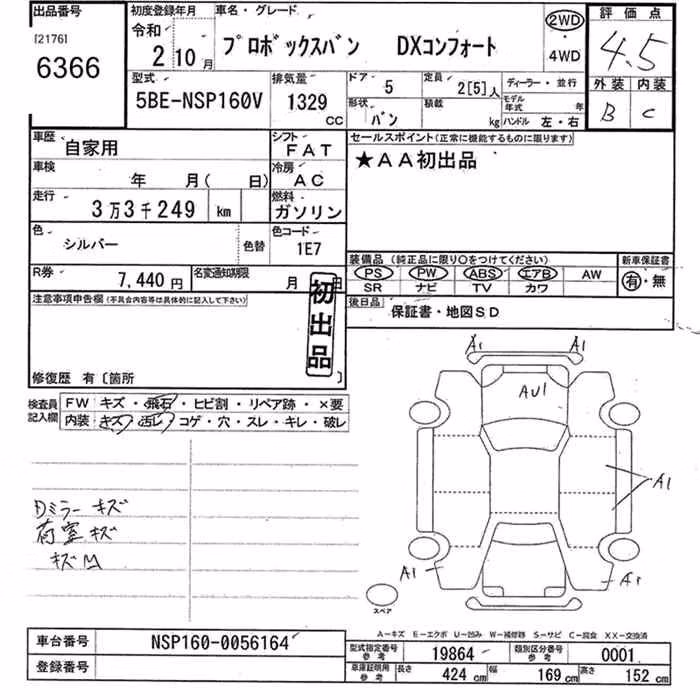 出品番号
[2176]
6366
初度登録年月
令和
2 10月
車名・グレード
プロボックスバン DXコンフォート
2WD
・
4WD
評価点
4.5
外装 内装
B C
型式
5BE-NSP160V
排気量
1329
CC
ドア 5
形状 バン
定員 2[5]人
積載 kg
ディーラー・並行
モデル年式 年
ハンドル 左・右
車歴
自家用
シフト
FAT
車検
年 月( 日)
冷房
AC
走行
3万3千249 km
燃料
ガソリン
色
シルバー
色替
色コード
1E7
R券
7,440円
名変通知期限
月 日
セールスポイント(正常に機能するものに限ります)
★AA初出品
装備品 (純正品に限り○をつけてください)
PS PW ABS エアB AW
SR ナビ TV カワ
新車保証書
有・無
後日品
保証書・地図SD
注意事項申告欄(不具合内容等は具体的に記入して下さい)
初出品
修復歴 有〔箇所 〕
検査員記入欄
FW キズ・飛石・ヒビ割・リペア跡・×要
内装 キズ・汚レ・コゲ・穴・スレ・キレ・破レ
Dミラー キズ
荷室キズ
キズM
A1 A1
AU1
A1
A1 A1
スペア
A-キズ E-エクボ U-凹み W-補修跡 S-サビ C-腐食 XX-交換済
車台番号
NSP160-0056164
登録番号
型式指定番号
参考
19864
類別区分番号
参考
0001
車庫証明用
参考
長さ 424 cm 幅 169 cm 高さ 152 cm